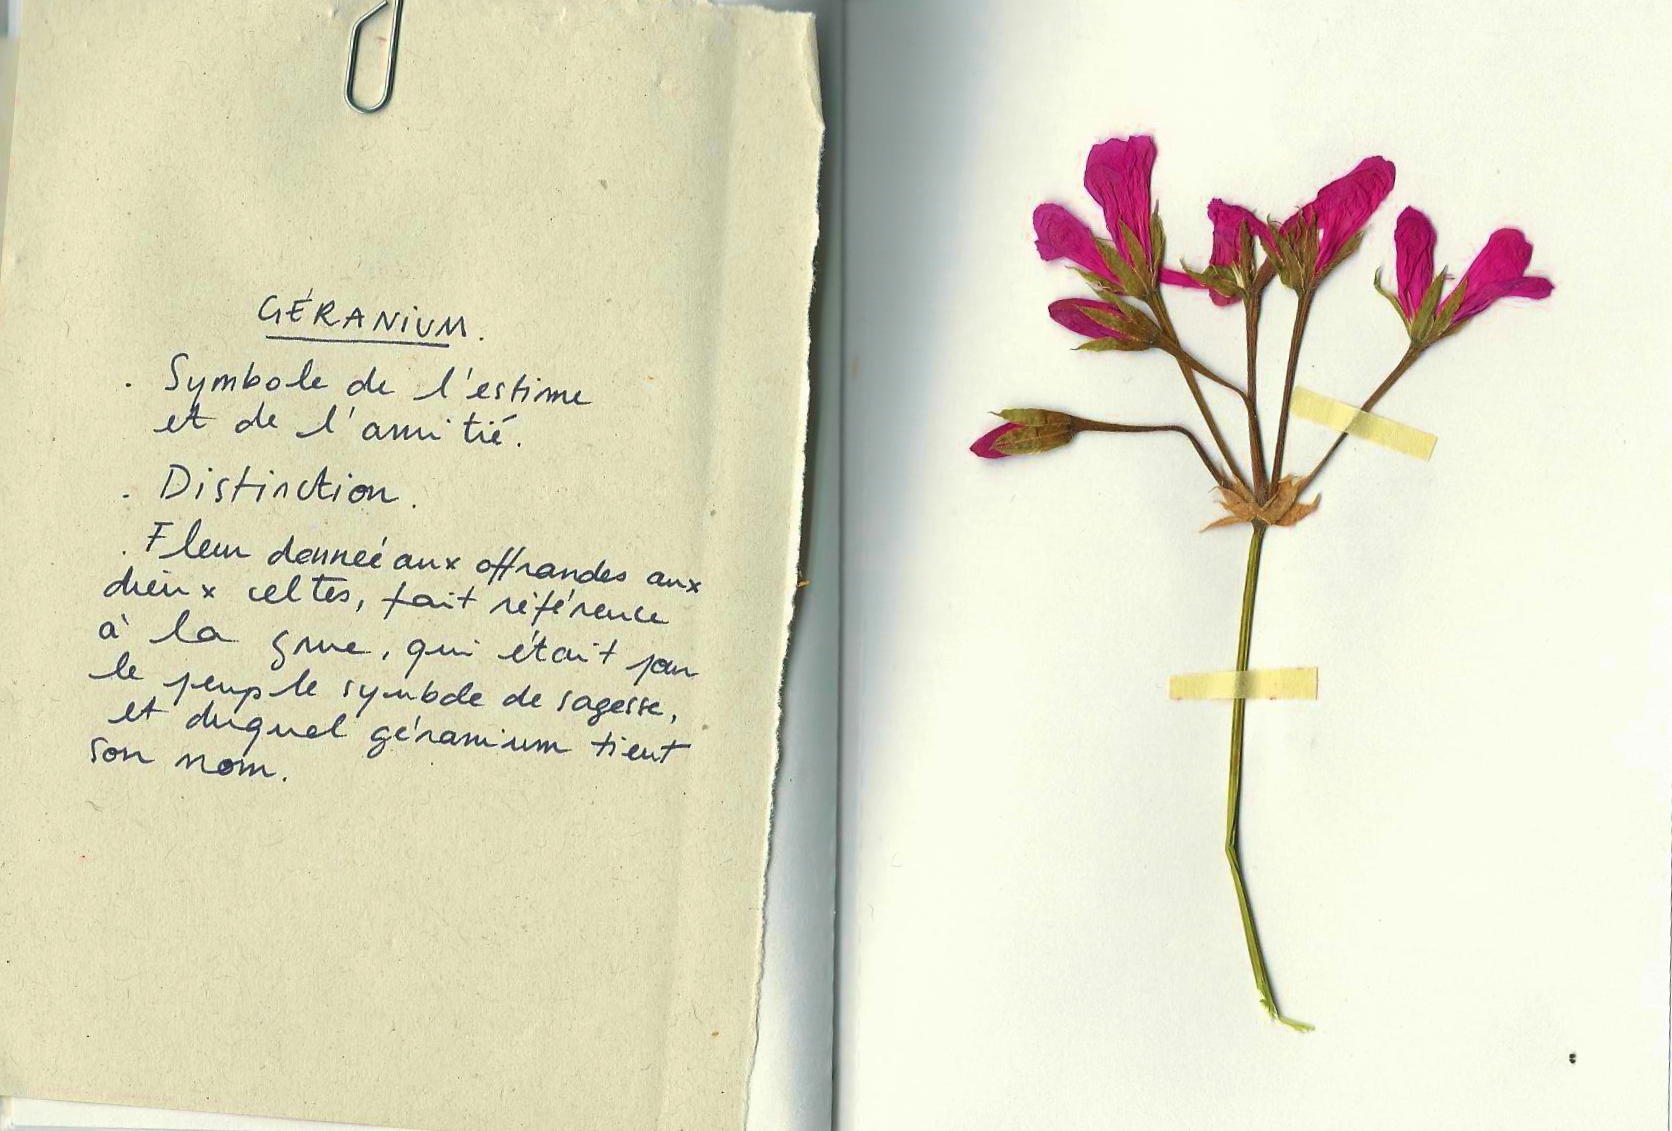 GÉRANIUM.
. Symbole de l'estime
et de l'amitié.
. Distinction.
. Fleur donneé aux offrandes aux
dieux celtes, fait référence
à la grue, qui était pour
le peuple symbole de sagesse,
et duquel géranium tient
son nom.